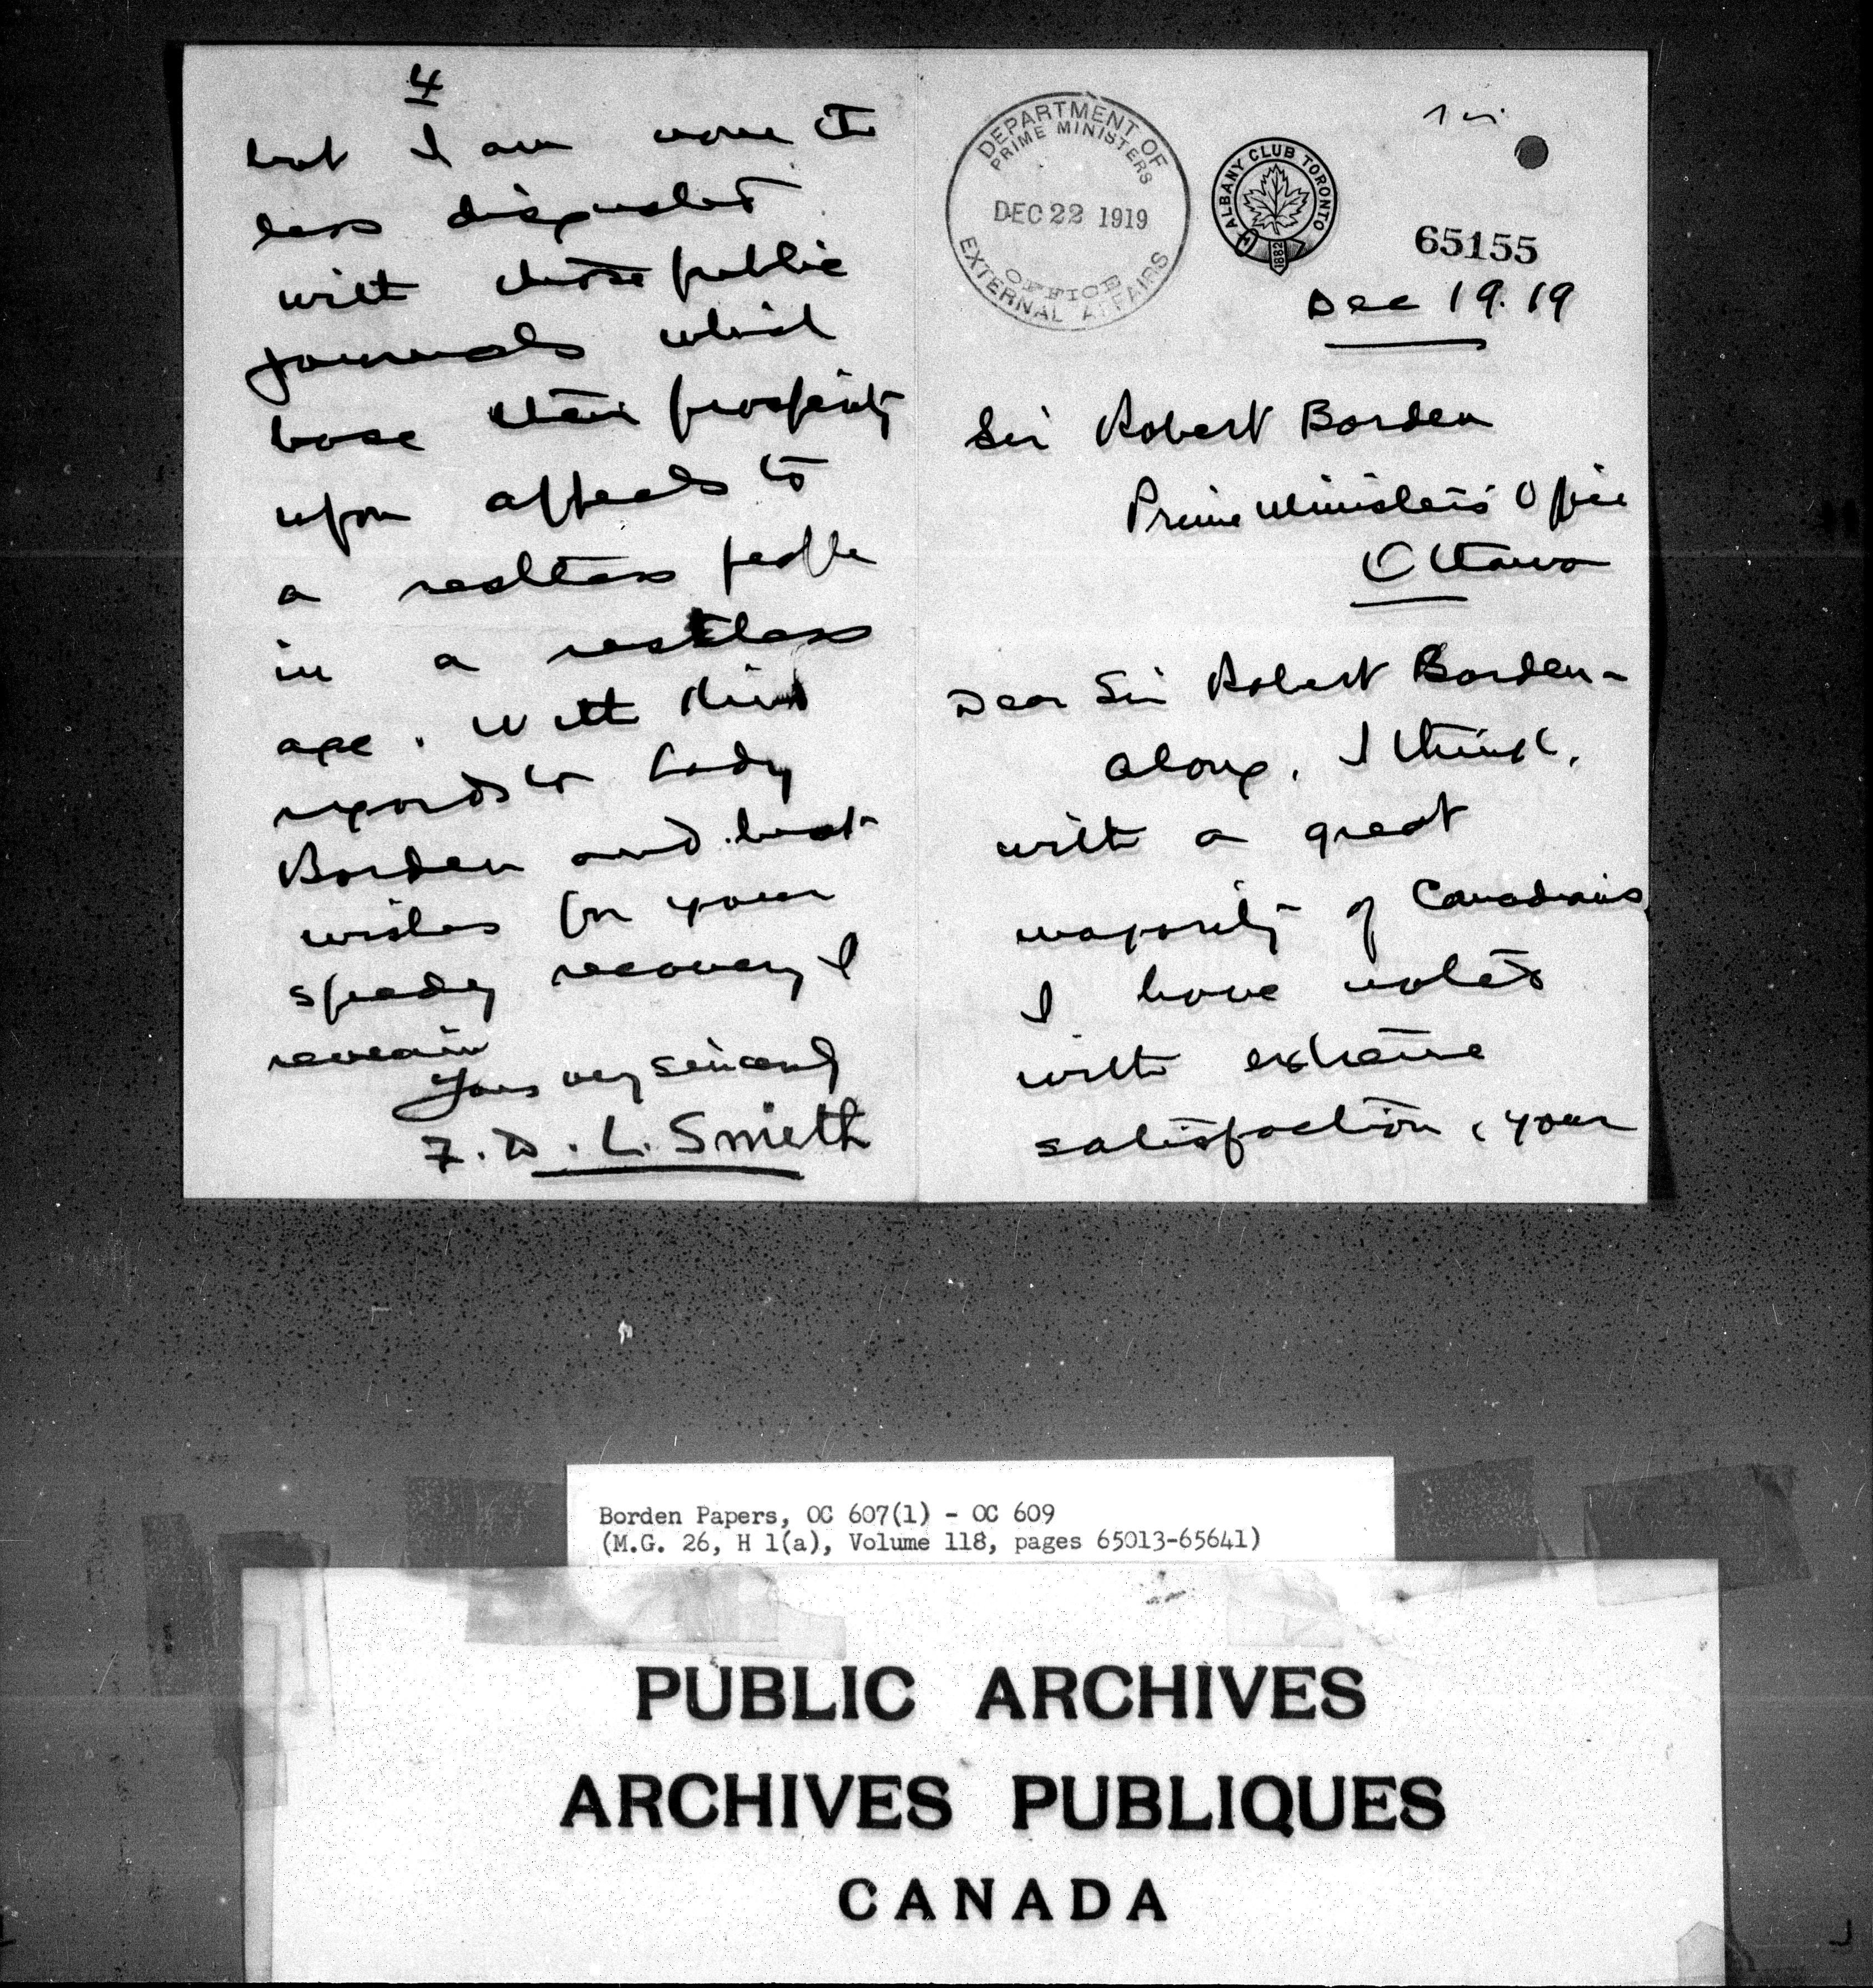 4
but I am none the
less disgusted
with those public
journals which
base their prosperity
upon appeals to
a restless people
in a restless
age. With kind
regards to Lady
Borden and best
wishes for your
speedy recovery I
remain
Yours very sincerely
F. D. L. Smith
DEPARTMENT OF
PRIME MINISTERS
DEC 22 1919
OFFICE
EXTERNAL AFFAIRS
ALBANY CLUB TORONTO
1882
65155
Dec 19. 19
Sir Robert Borden
Prime Minister's Office
Ottawa
Dear Sir Robert Borden -
Along, I think,
with a great
majority of Canadians
I have noted
with extreme
satisfaction, your
Borden Papers, OC 607(1) - OC 609
(M.G. 26, H 1(a), Volume 118, pages 65013-65641)
PUBLIC ARCHIVES
ARCHIVES PUBLIQUES
CANADA